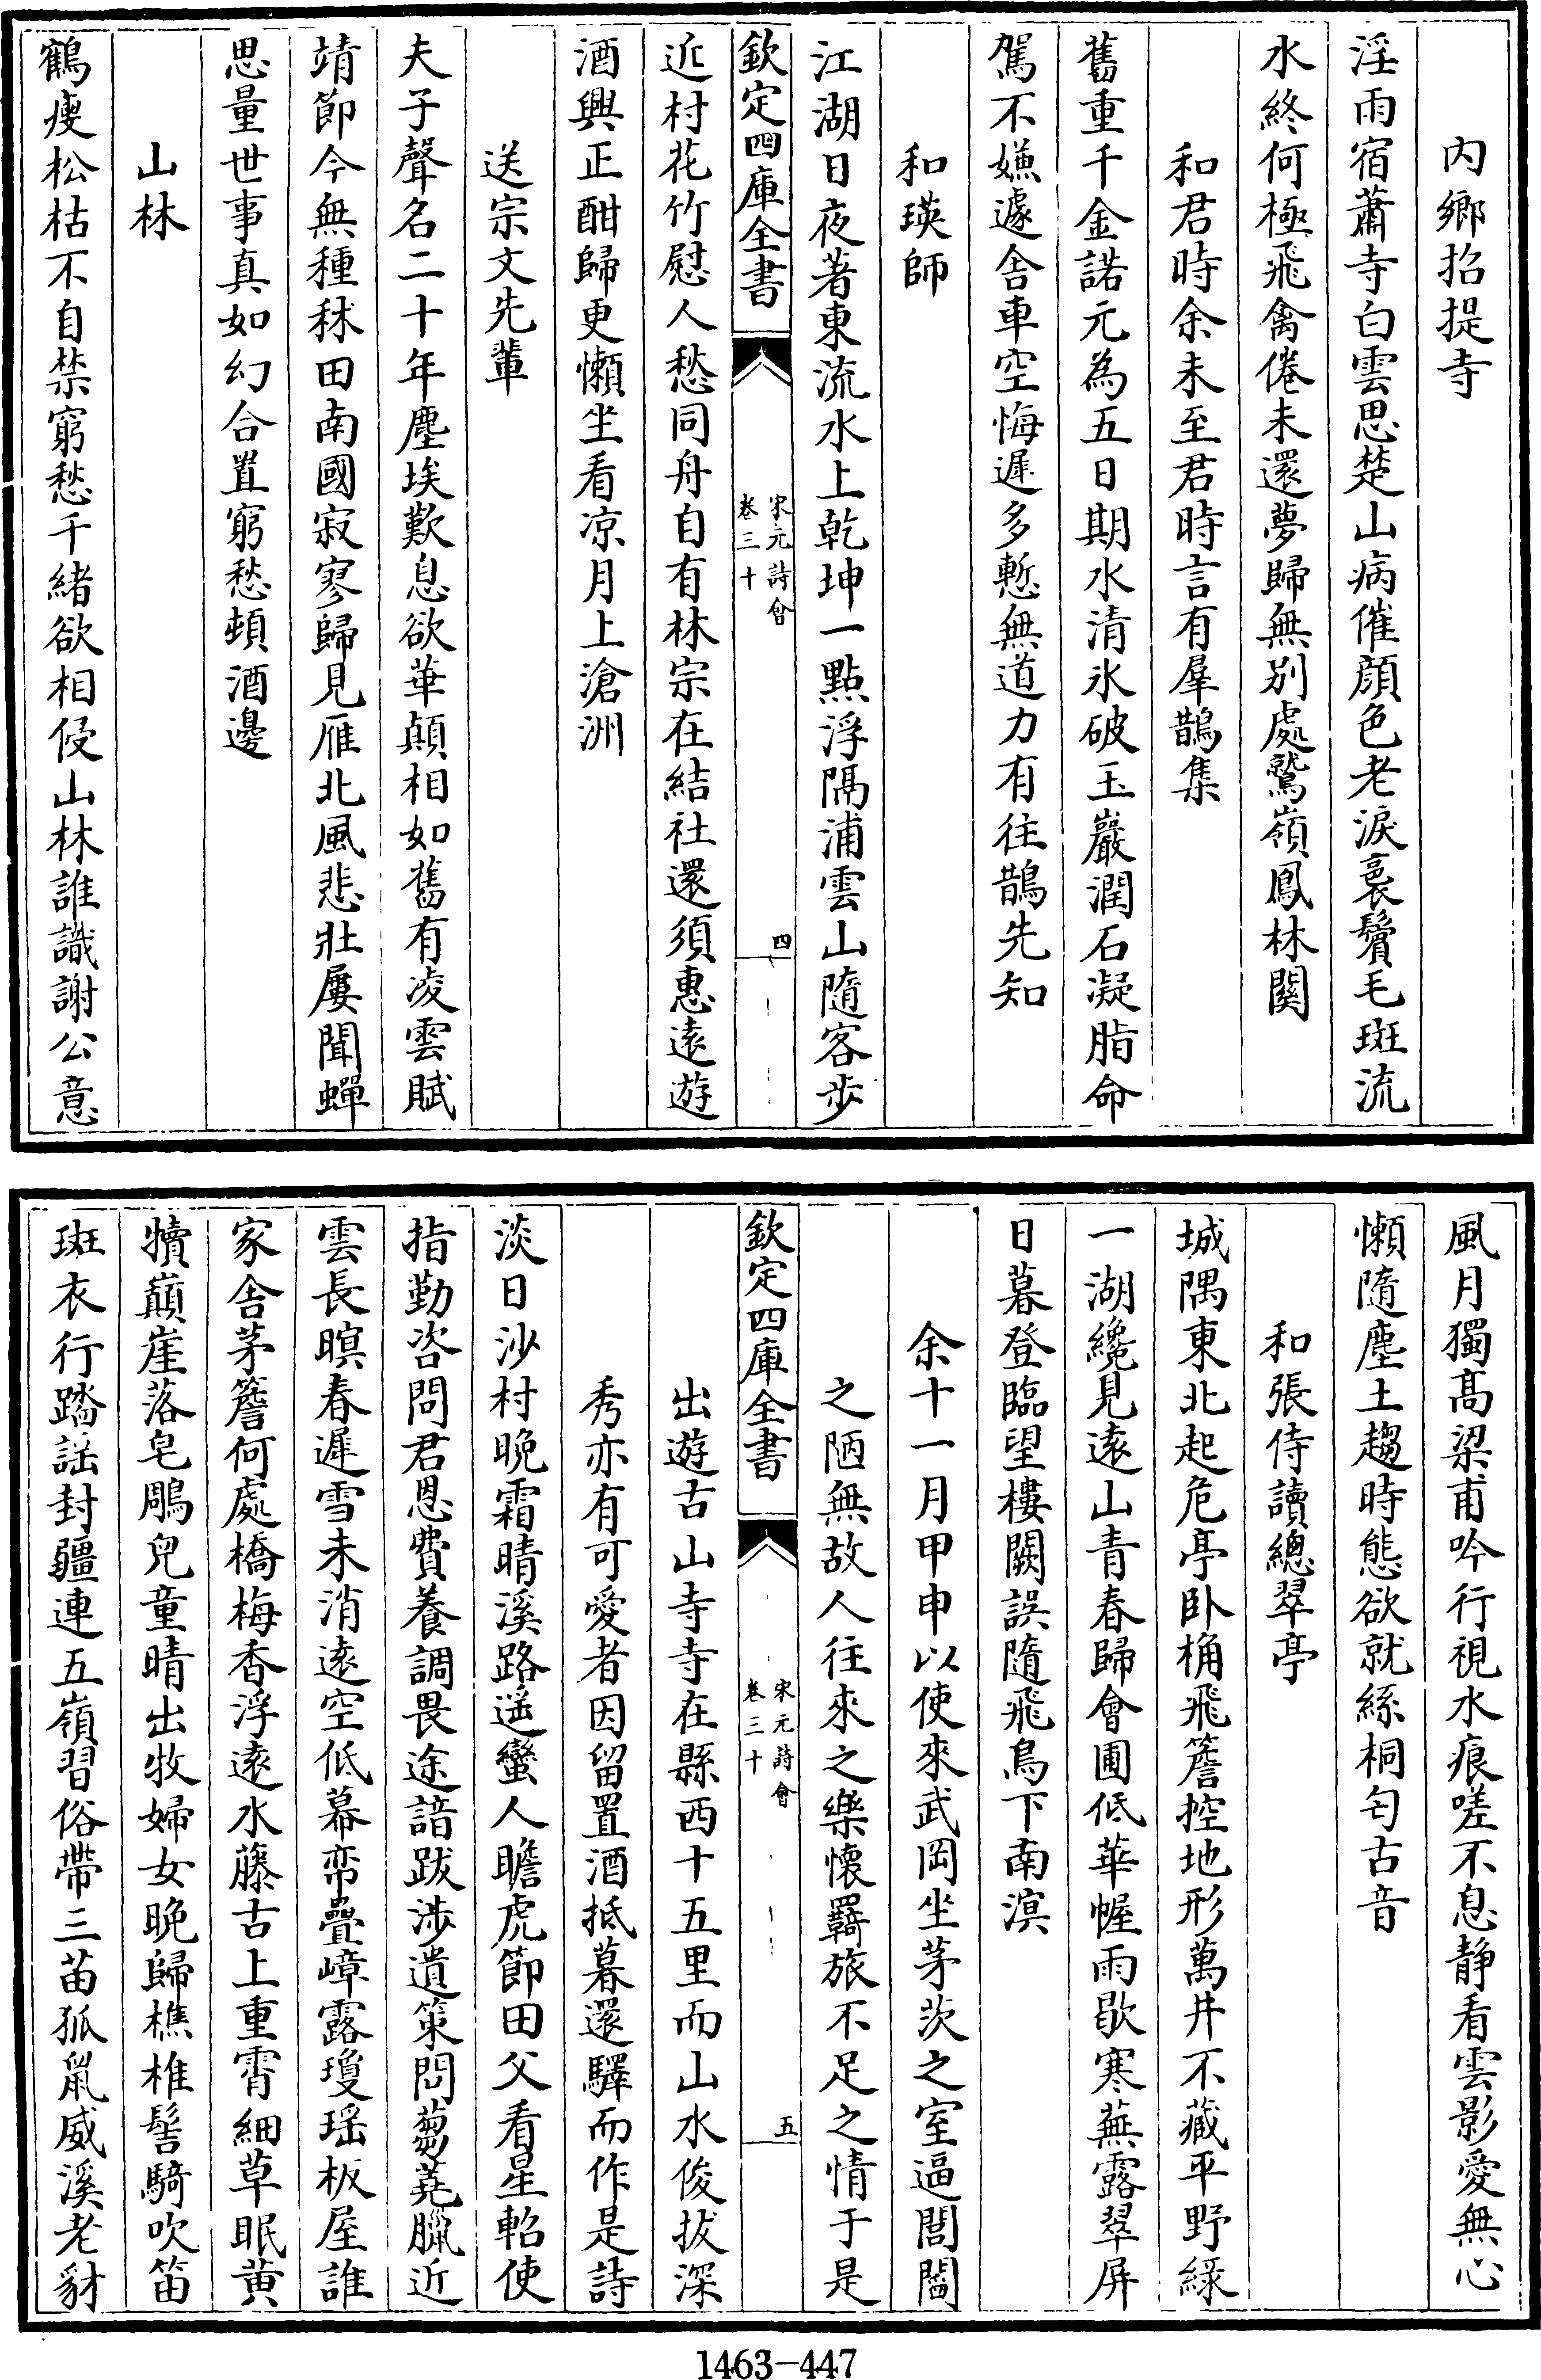 内鄉招提寺
淫雨宿蕭寺白雲思楚山病催顔色老淚裛鬢毛斑流
水終何極飛禽倦未還夢歸無别處鷲嶺鳳林關
和君時余未至君時言有羣鵲集
舊重千金諾元為五日期水清氷破玉巖潤石凝脂命
駕不嫌遽舍車空悔遲多慙無道力有往鵲先知
和瑛師
江湖日夜著東流水上乾坤一點浮隔浦雲山隨客步
欽定四庫全書
宋元詩會
卷三十
四
近村花竹慰人愁同舟自有林宗在結社還須惠遠遊
酒興正酣歸更懶坐看凉月上滄洲
送宗文先輩
夫子聲名二十年塵埃歎息欲華顛相如舊有凌雲賦
靖節今無種秫田南國寂寥歸見雁北風悲壯屢聞蟬
思量世事真如幻合置窮愁頓酒邊
山林
鶴瘦松枯不自禁窮愁千緒欲相侵山林誰識謝公意
風月獨髙梁甫吟行視水痕嗟不息静看雲影愛無心
懶隨塵土趨時態欲就絲桐匄古音
和張侍讀總翠亭
城隅東北起危亭卧桷飛簷控地形萬井不藏平野緑
一湖纔見遠山青春歸會圃低華幄雨歇寒蕪露翠屏
日暮登臨望樓闕誤隨飛鳥下南溟
余十一月甲申以使來武岡坐茅茨之室逼閭閻
之陋無故人往來之樂懷羇旅不足之情于是
欽定四庫全書
宋元詩會
卷三十
五
出遊古山寺寺在縣西十五里而山水俊拔深
秀亦有可愛者因留置酒抵暮還驛而作是詩
淡日沙村晩霜晴溪路遥蠻人瞻虎節田父看星軺使
指勤咨問君恩費養調畏途諳跋渉遺策問蒭蕘臘近
雲長暝春遲雪未消遠空低幕帟疊嶂露瓊瑶板屋誰
家舍茅簷何處橋梅香浮遠水藤古上重霄細草眠黄
犢巔崖落皂鵰兒童晴出牧婦女晩歸樵椎髻騎吹笛
斑衣行踏謡封疆連五嶺習俗帶三苗狐鼠威溪老豺
1463-447